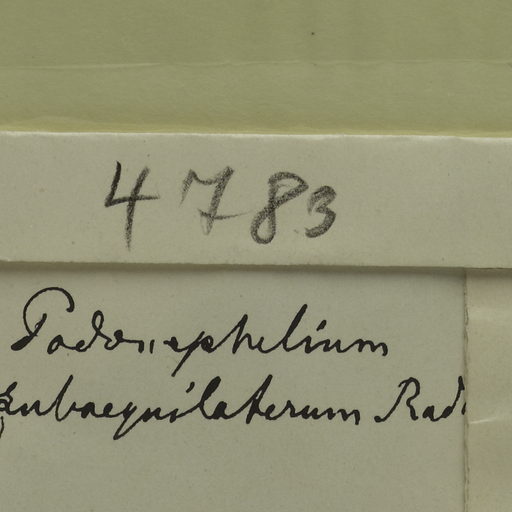 4783
Podonephelium
subaequilaterum Radl